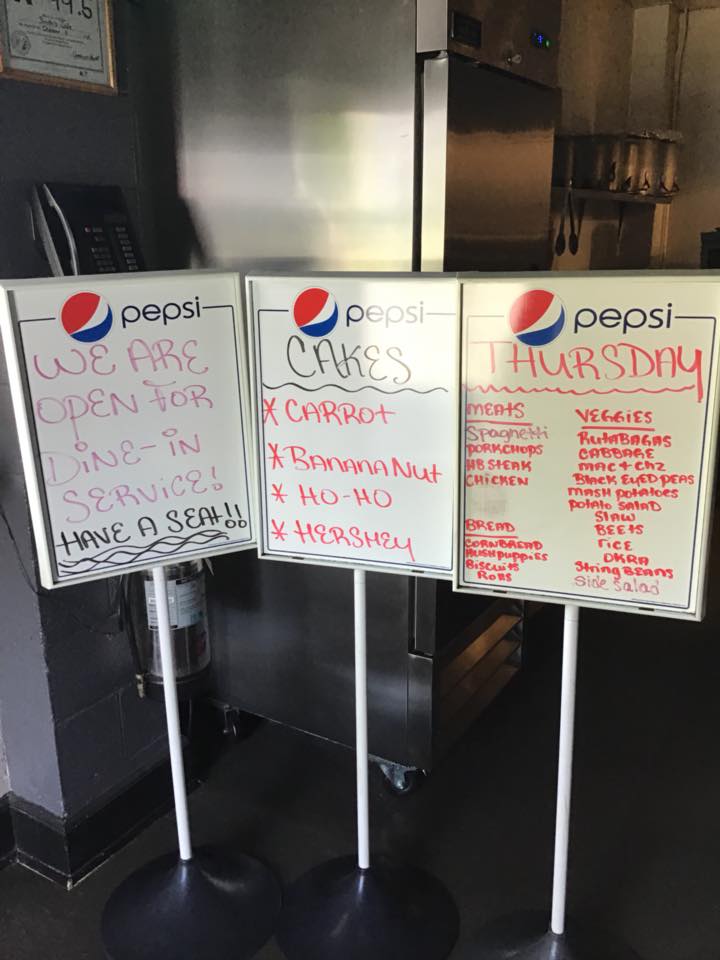 99.5
pepsi
WE ARE
OPEN FOR
DINE-IN
SERVICE!
HAVE A SEAT!!
pepsi
CAKES
* CARROT
* BANANA NUT
* HO-HO
* HERSHEY
pepsi
THURSDAY
MEATS
Spaghetti
PORKCHOPS
HB STEAK
CHICKEN
BREAD
CORNBREAD
HUSHPUPPIES
Biscuits
Rolls
VEGGIES
RUTABAGAS
CABBAGE
MAC + CHZ
BLACK EYED PEAS
MASH POTATOES
POTATO SALAD
SLAW
BEETS
RICE
OKRA
STRING BEANS
Side Salad